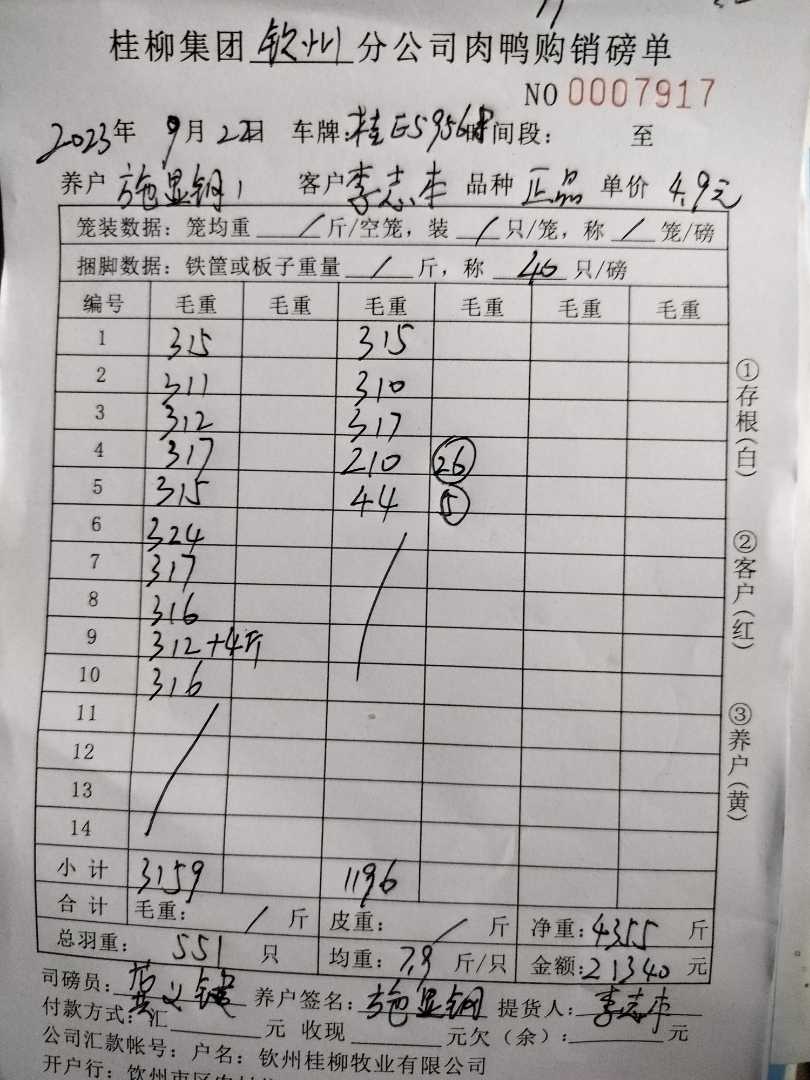 桂柳集团 钦州 分公司肉鸭购销磅单
NO 0007917
2023年 9月22日 车牌:桂E5956 时间段: 至
养户 施显钢 客户 李志 品种 正品 单价 4.9元
笼装数据: 笼均重 / 斤/空笼, 装 / 只/笼, 称 / 笼/磅
捆脚数据: 铁筐或板子重量 / 斤, 称 40 只/磅
编号 毛重 毛重 毛重 毛重 毛重 毛重
1 315 315
2 311 310
3 312 317
4 317 210 26
5 315 44 5
6 324
7 317
8 316
9 312+4斤
10 316
11
12
13
14
小计 3159 1196
合计 毛重: / 斤 皮重: / 斤 净重: 4355 斤
总羽重: 551 只 均重: 7.9 斤/只 金额: 21340 元
司磅员: 养户签名: 施显钢 提货人: 李志
付款方式: 汇 元 收现 元欠(余): 元
公司汇款帐号: 户名: 钦州桂柳牧业有限公司
开户行: 钦州市区农村
①存根(白)
②客户(红)
③养户(黄)